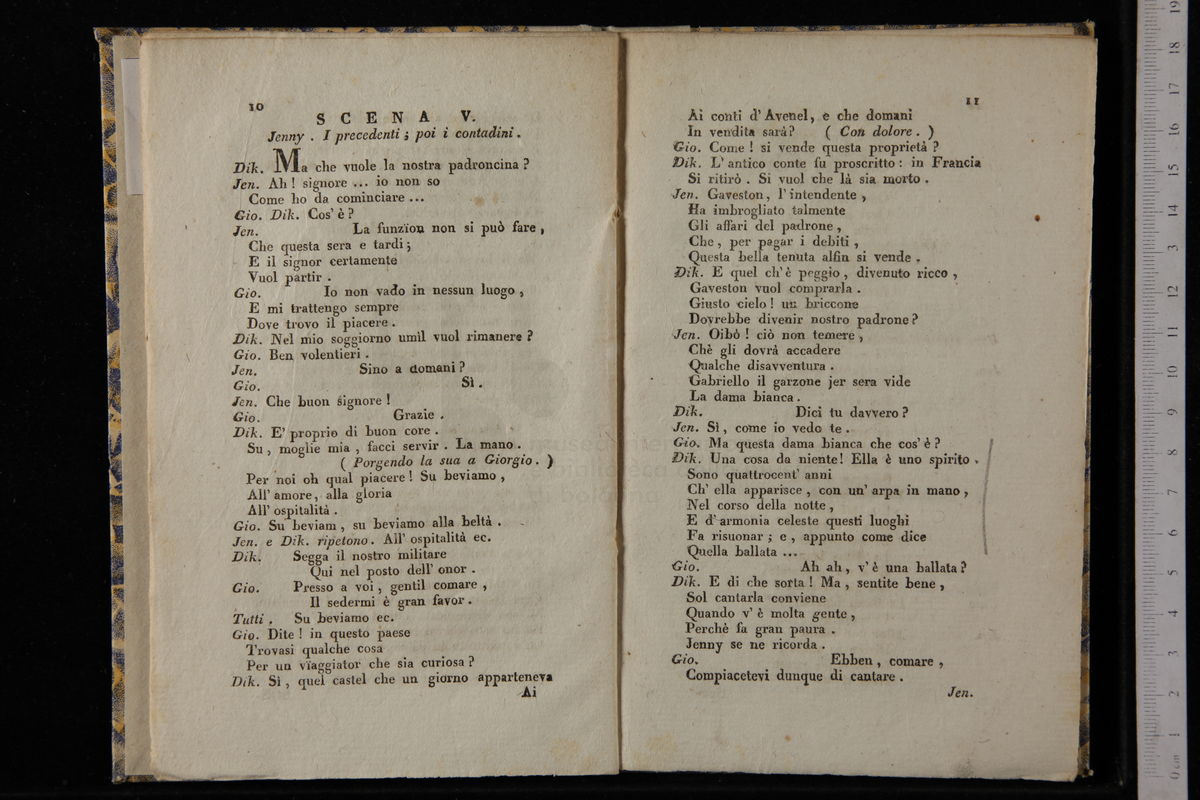 10
SCENA V.
Jenny . I precedenti ; poi i contadini .
Dik. Ma che vuole la nostra padroncina ?
Jen. Ah ! signore ... io non so
Come ho da cominciare ...
Gio. Dik. Cos' è ?
Jen. La funzion non si può fare ,
Che questa sera e tardi ;
E il signor certamente
Vuol partir .
Gio. Io non vado in nessun luogo ,
E mi trattengo sempre
Dove trovo il piacere .
Dik. Nel mio soggiorno umìl vuol rimanere ?
Gio. Ben volentieri .
Jen. Sino a domani ?
Gio. Sì .
Jen. Che buon signore !
Gio. Grazie .
Dik. E' proprio di buon core .
Su , moglie mia , facci servir . La mano .
( Porgendo la sua a Giorgio . )
Per noi oh qual piacere ! Su beviamo ,
All' amore , alla gloria
All' ospitalità .
Gio. Su beviam , su beviamo alla beltà .
Jen. e Dik. ripetono . All' ospitalità ec.
Dik. Segga il nostro militare
Qui nel posto dell' onor .
Gio. Presso a voi , gentil comare ,
Il sedermi è gran favor .
Tutti . Su beviamo ec.
Gio. Dite ! in questo paese
Trovasi qualche cosa
Per un viaggiator che sia curiosa ?
Dik. Sì , quel castel che un giorno apparteneva
Ai
11
Ai conti d' Avenel , e che domani
In vendita sarà ? ( Con dolore . )
Gio. Come ! si vende questa proprietà ?
Dik. L' antico conte fu proscritto : in Francia
Si ritirò . Si vuol che là sia morto .
Jen. Gaveston , l' intendente ,
Ha imbrogliato talmente
Gli affari del padrone ,
Che , per pagar i debiti ,
Questa bella tenuta alfin si vende .
Dik. E quel ch' è peggio , divenuto ricco ,
Gaveston vuol comprarla .
Giusto cielo ! un briccone
Dovrebbe divenir nostro padrone ?
Jen. Oibò ! ciò non temere ,
Chè gli dovrà accadere
Qualche disavventura .
Gabriello il garzone jer sera vide
La dama bianca .
Dik. Dici tu davvero ?
Jen. Sì , come io vedo te .
Gio. Ma questa dama bianca che cos' è ?
Dik. Una cosa da niente ! Ella è uno spirito .
Sono quattrocent' anni
Ch' ella apparisce , con un' arpa in mano ,
Nel corso della notte ,
E d' armonia celeste questi luoghi
Fa risuonar ; e , appunto come dice
Quella ballata ...
Gio. Ah ah , v' è una ballata ?
Dik. E di che sorta ! Ma , sentite bene ,
Sol cantarla conviene
Quando v' è molta gente ,
Perchè fa gran paura .
Jenny se ne ricorda .
Gio. Ebben , comare ,
Compiacetevi dunque di cantare .
Jen.